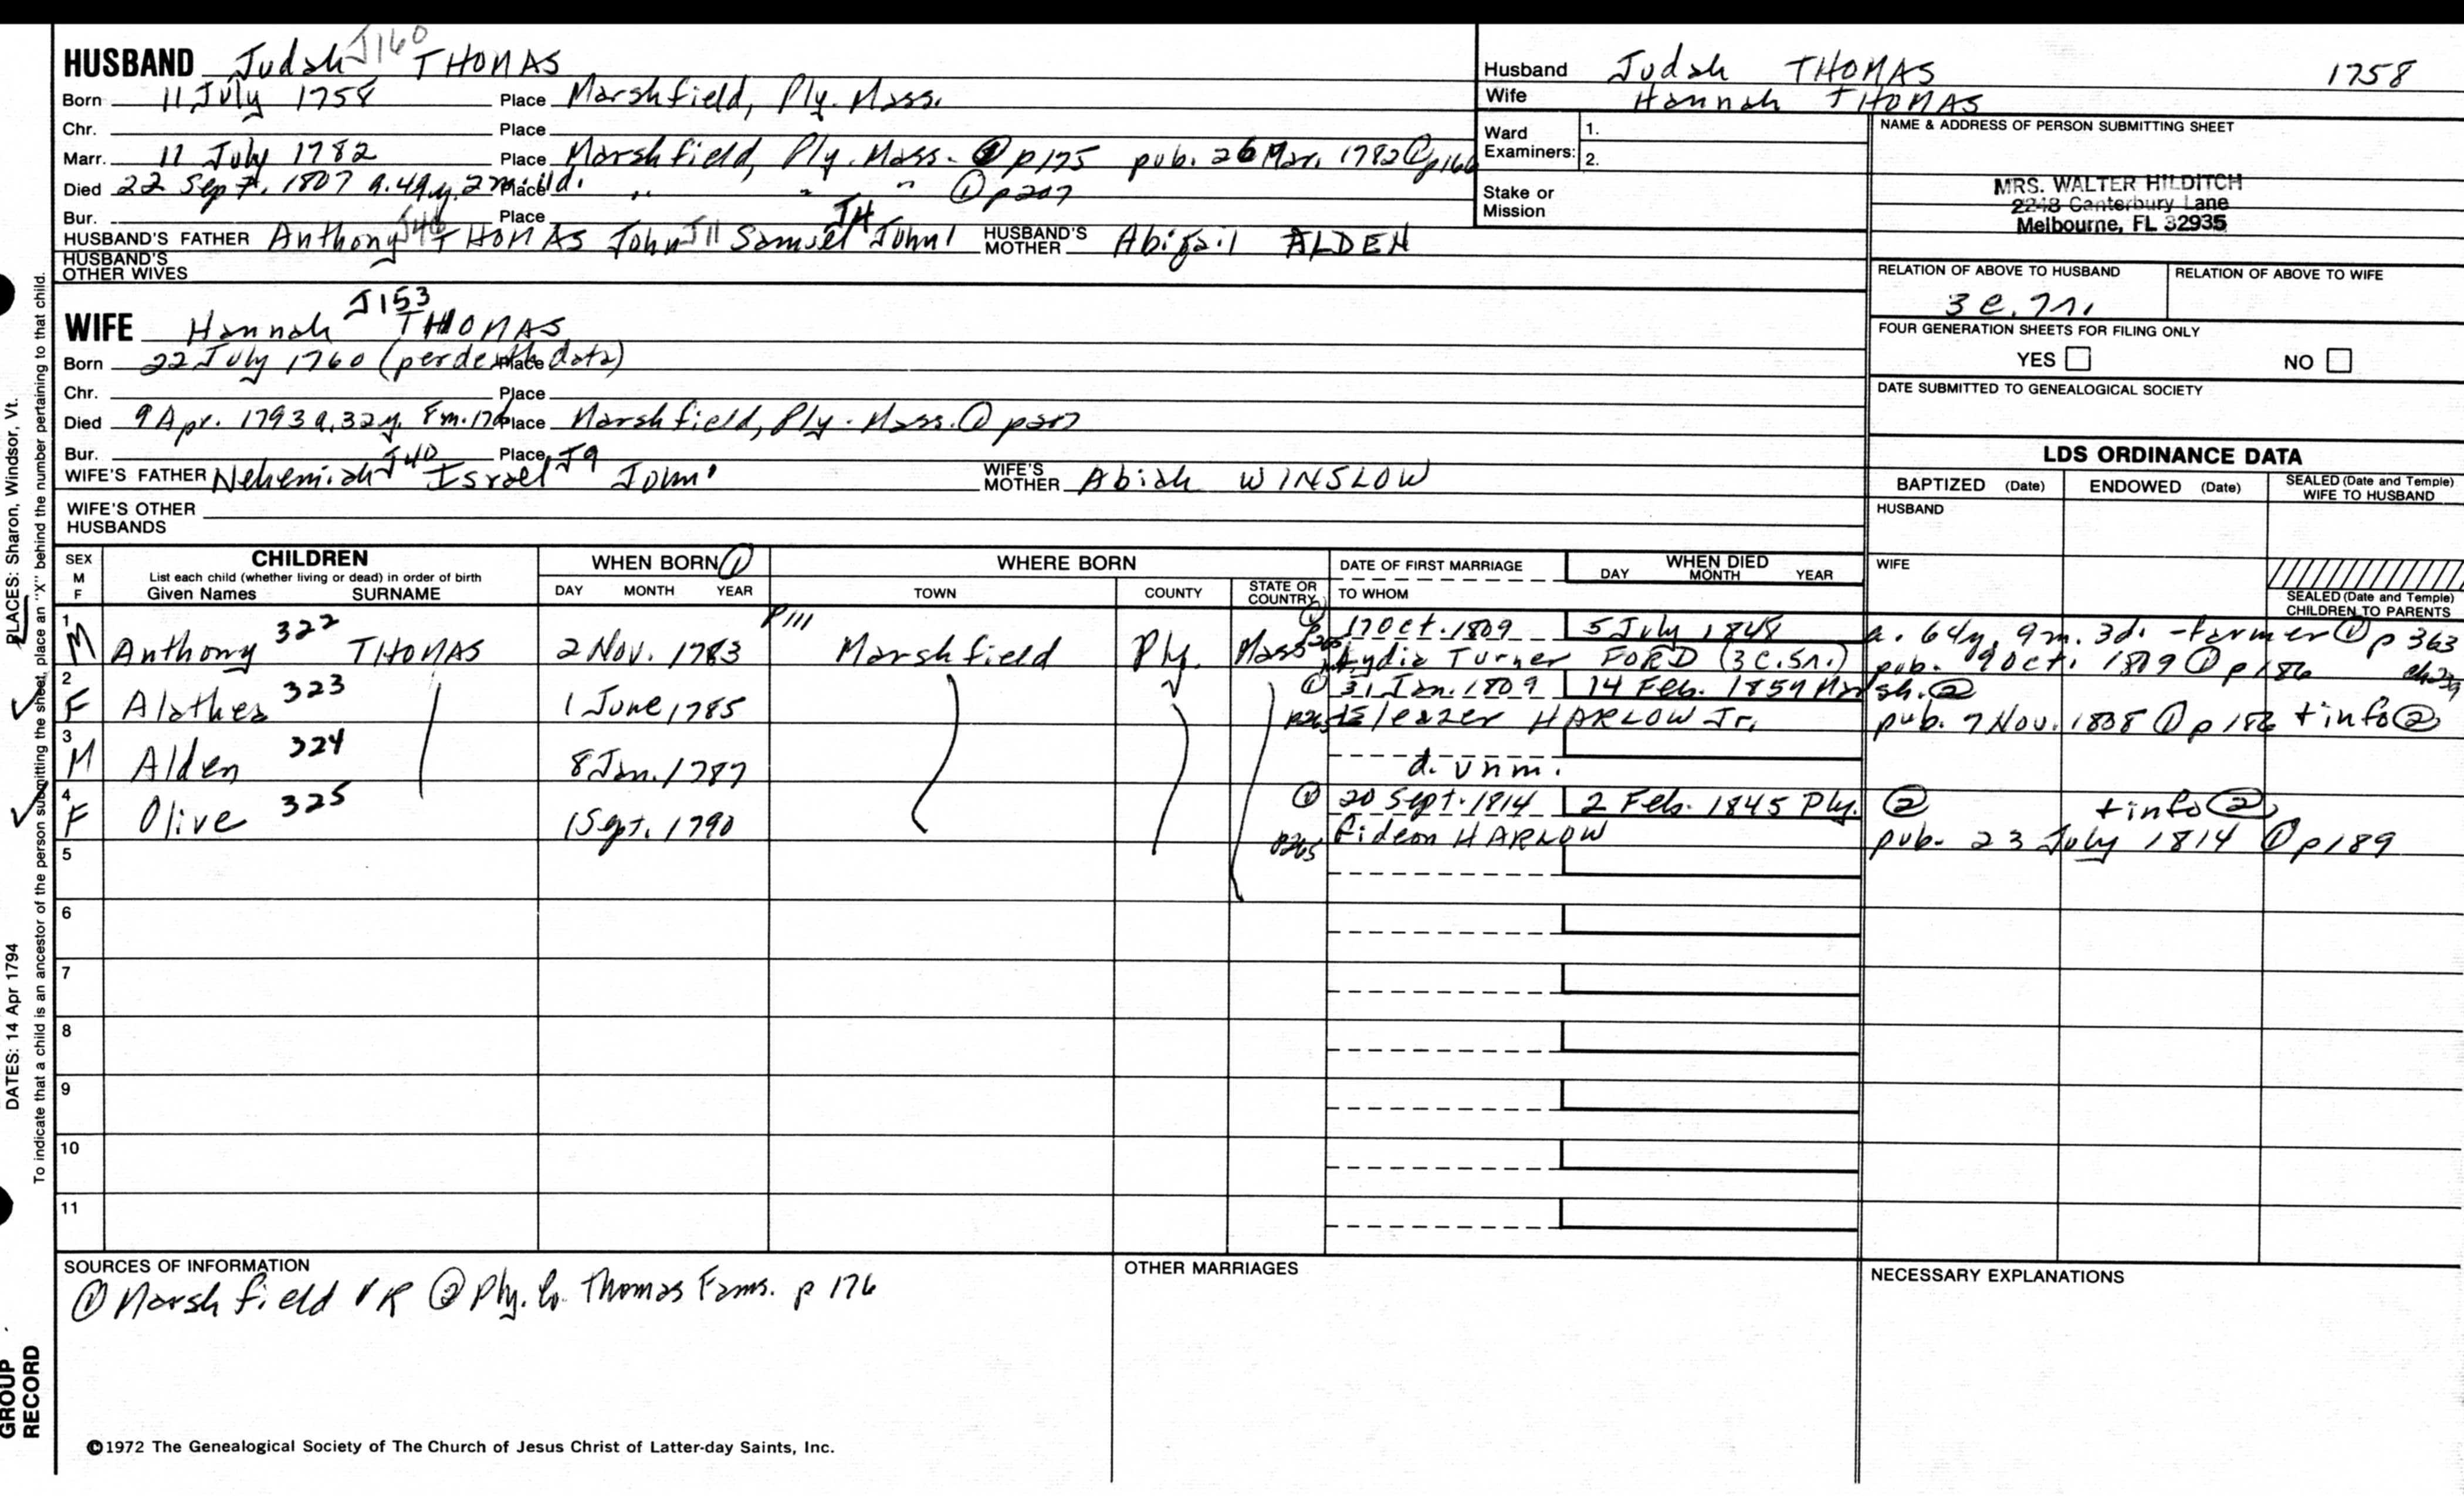 HUSBAND Judah J160 THOMAS
Born 11 July 1758 Place Marshfield, Ply. Mass.
Chr. Place
Marr. 11 July 1782 Place Marshfield, Ply. Mass. ① p175 pub. 26 Mar. 1782 ① p166
Died 22 Sept. 1807 a. 49y. 2m. 11d. Place " " " ① p207
Bur. Place
HUSBAND'S FATHER Anthony J46 THOMAS John J11 Samuel J4 John1 HUSBAND'S MOTHER Abigail ALDEN
HUSBAND'S OTHER WIVES
WIFE Hannah J153 THOMAS
Born 22 July 1760 (per death data) Place
Chr. Place
Died 9 Apr. 1793 a. 32y. 8m. 17d. Place Marshfield, Ply. Mass. ①
Bur. Place
WIFE'S FATHER Nehemiah J40 Israel J9 John1 WIFE'S MOTHER Abiah WINSLOW
WIFE'S OTHER HUSBANDS
Husband Judah THOMAS 1758
Wife Hannah THOMAS
Ward Examiners: 1.
2.
Stake or Mission
NAME & ADDRESS OF PERSON SUBMITTING SHEET
MRS. WALTER HILDITCH
2248 Canterbury Lane
Melbourne, FL 32935
RELATION OF ABOVE TO HUSBAND RELATION OF ABOVE TO WIFE
FOUR GENERATION SHEETS FOR FILING ONLY
YES NO
DATE SUBMITTED TO GENEALOGICAL SOCIETY
LDS ORDINANCE DATA
BAPTIZED (Date) ENDOWED (Date) SEALED (Date and Temple) WIFE TO HUSBAND
HUSBAND
WIFE
SEALED (Date and Temple) CHILDREN TO PARENTS
SEX M F CHILDREN WHEN BORN ① WHERE BORN DATE OF FIRST MARRIAGE WHEN DIED
List each child (whether living or dead) in order of birth
Given Names SURNAME DAY MONTH YEAR TOWN COUNTY STATE OR COUNTRY TO WHOM DAY MONTH YEAR
p111
1 M Anthony 322 THOMAS 2 Nov. 1783 Marshfield Ply. Mass 17 Oct. 1809 5 July 1848 a. 64y. 9m. 3d. - farmer ① p363
Lydia Turner FORD (3 C. Sn.) pub. Oct. 1809 ① p186
2 F Alathea 323 1 June 1785 ① 31 Jan. 1809 14 Feb. 1857 Marsh. ②
Eleazer HARLOW Jr. pub. 7 Nov. 1808 ① p186 + info ②
3 M Alden 324 8 Jan. 1787 d. unm.
4 F Olive 325 1 Sept. 1790 ① 20 Sept. 1814 2 Feb. 1845 Ply. ② + info ②
p265 Gideon HARLOW pub. 23 July 1814 ① p189
5
6
7
8
9
10
11
SOURCES OF INFORMATION
① Marshfield VR ② Ply. Co. Thomas Fams. p 176
OTHER MARRIAGES
NECESSARY EXPLANATIONS
©1972 The Genealogical Society of The Church of Jesus Christ of Latter-day Saints, Inc.
PLACES: Sharon, Windsor, Vt.
DATES: 14 Apr 1794
To indicate that a child is an ancestor of the person submitting the sheet, place an "X" behind the number pertaining to that child.
GROUP
RECORD